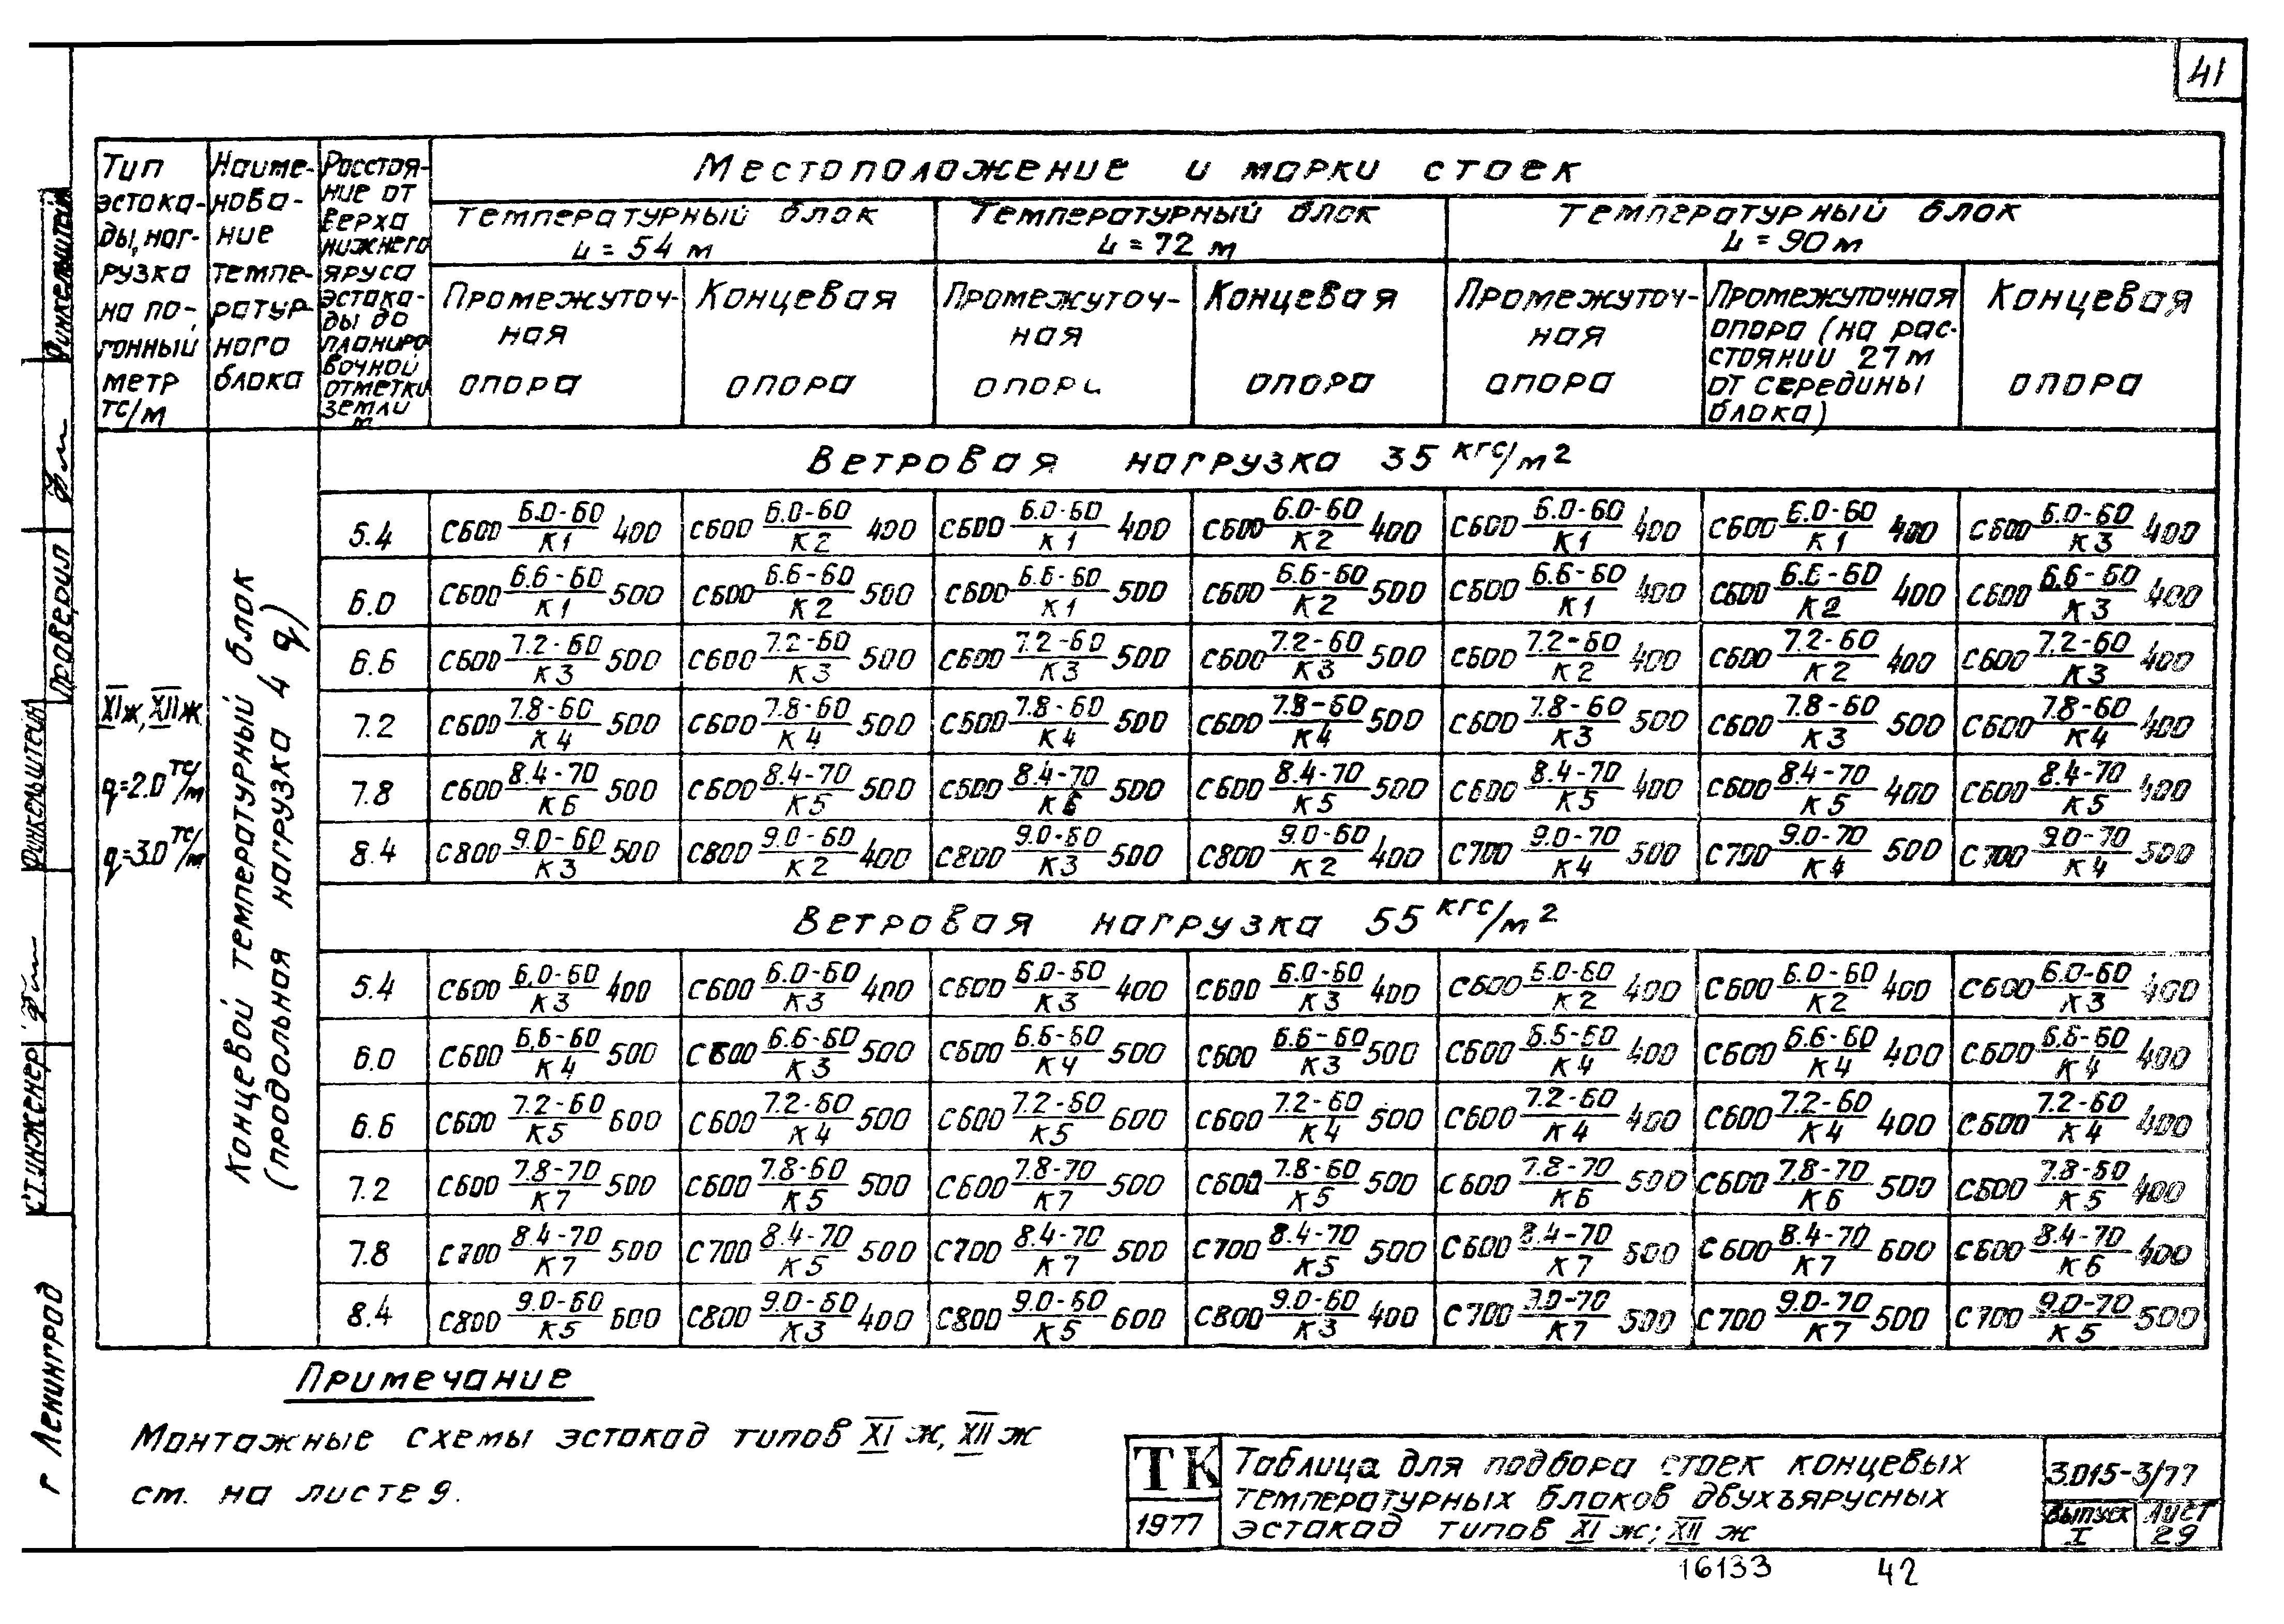 41
Тип эстока-ды, наг-рузка на по-гонный метр тс/м
Наиме-нова-ние темпе-ратур-ного блока
Расстоя-ние от верха нижнего яруса эстака-ды до планиро вочной отметки земли м
Местоположение и марки стоек
Температурный блок L = 54 м
Температурный блок L = 72 м
Температурный блок L = 90 м
Промежуточ-ная опора
Концевая опора
Промежуточ-ная опора
Концевая опора
Промежуточ-ная опора
Промежуточная опора (на рас-стоянии 27 м от середины блока)
Концевая опора
XIж, XIIж
q=2.0 тс/м
q=3.0 тс/м
Концевой температурный блок
(продольная нагрузка 4 q)
Ветровая нагрузка 35 кгс/м²
5.4 С600 6.0-60/К1 400 С600 6.0-60/К2 400 С600 6.0-60/К1 400 С600 6.0-60/К2 400 С600 6.0-60/К1 400 С600 6.0-60/К1 400 С600 6.0-60/К3 400
6.0 С600 6.6-60/К1 500 С600 6.6-60/К2 500 С600 6.6-60/К1 500 С600 6.6-60/К2 500 С600 6.6-60/К1 400 С600 6.6-60/К2 400 С600 6.6-60/К3 400
6.6 С600 7.2-60/К3 500 С600 7.2-60/К3 500 С600 7.2-60/К3 500 С600 7.2-60/К3 500 С600 7.2-60/К2 400 С600 7.2-60/К2 400 С600 7.2-60/К3 400
7.2 С600 7.8-60/К4 500 С600 7.8-60/К4 500 С600 7.8-60/К4 500 С600 7.8-60/К4 500 С600 7.8-60/К3 500 С600 7.8-60/К3 500 С600 7.8-60/К4 400
7.8 С600 8.4-70/К6 500 С600 8.4-70/К5 500 С600 8.4-70/К6 500 С600 8.4-70/К5 500 С600 8.4-70/К5 400 С600 8.4-70/К5 400 С600 8.4-70/К5 400
8.4 С800 9.0-60/К3 500 С800 9.0-60/К2 400 С800 9.0-60/К3 500 С800 9.0-60/К2 400 С700 9.0-70/К4 500 С700 9.0-70/К4 500 С700 9.0-70/К4 500
Ветровая нагрузка 55 кгс/м²
5.4 С600 6.0-60/К3 400 С600 6.0-60/К3 400 С600 6.0-60/К3 400 С600 6.0-60/К3 400 С600 6.0-60/К2 400 С600 6.0-60/К2 400 С600 6.0-60/К3 400
6.0 С600 6.6-60/К4 500 С600 6.6-60/К3 500 С600 6.6-60/К4 500 С600 6.6-60/К3 500 С600 6.6-60/К4 400 С600 6.6-60/К4 400 С600 6.6-60/К4 400
6.6 С600 7.2-60/К5 600 С600 7.2-60/К4 500 С600 7.2-60/К5 600 С600 7.2-60/К4 500 С600 7.2-60/К4 400 С600 7.2-60/К4 400 С600 7.2-60/К4 400
7.2 С600 7.8-70/К7 500 С600 7.8-60/К5 500 С600 7.8-70/К7 500 С600 7.8-60/К5 500 С600 7.8-70/К6 500 С600 7.8-70/К6 500 С600 7.8-60/К5 400
7.8 С700 8.4-70/К7 500 С700 8.4-70/К5 500 С700 8.4-70/К7 500 С700 8.4-70/К5 500 С600 8.4-70/К7 600 С600 8.4-70/К7 600 С600 8.4-70/К6 400
8.4 С800 9.0-60/К5 600 С800 9.0-60/К3 400 С800 9.0-60/К5 600 С800 9.0-60/К3 400 С700 9.0-70/К7 500 С700 9.0-70/К7 500 С700 9.0-70/К5 500
Примечание
Монтажные схемы эстакад типов XI ж, XII ж
см. на листе 9.
ТК
1977
Таблица для подбора стоек концевых
температурных блоков двухъярусных
эстакад типов XI ж; XII ж
3.015-3/77
выпуск I
лист 29
16133 42
г Ленинград
ст. инженер
Финкельштейн
Проверил
Финкельштейн